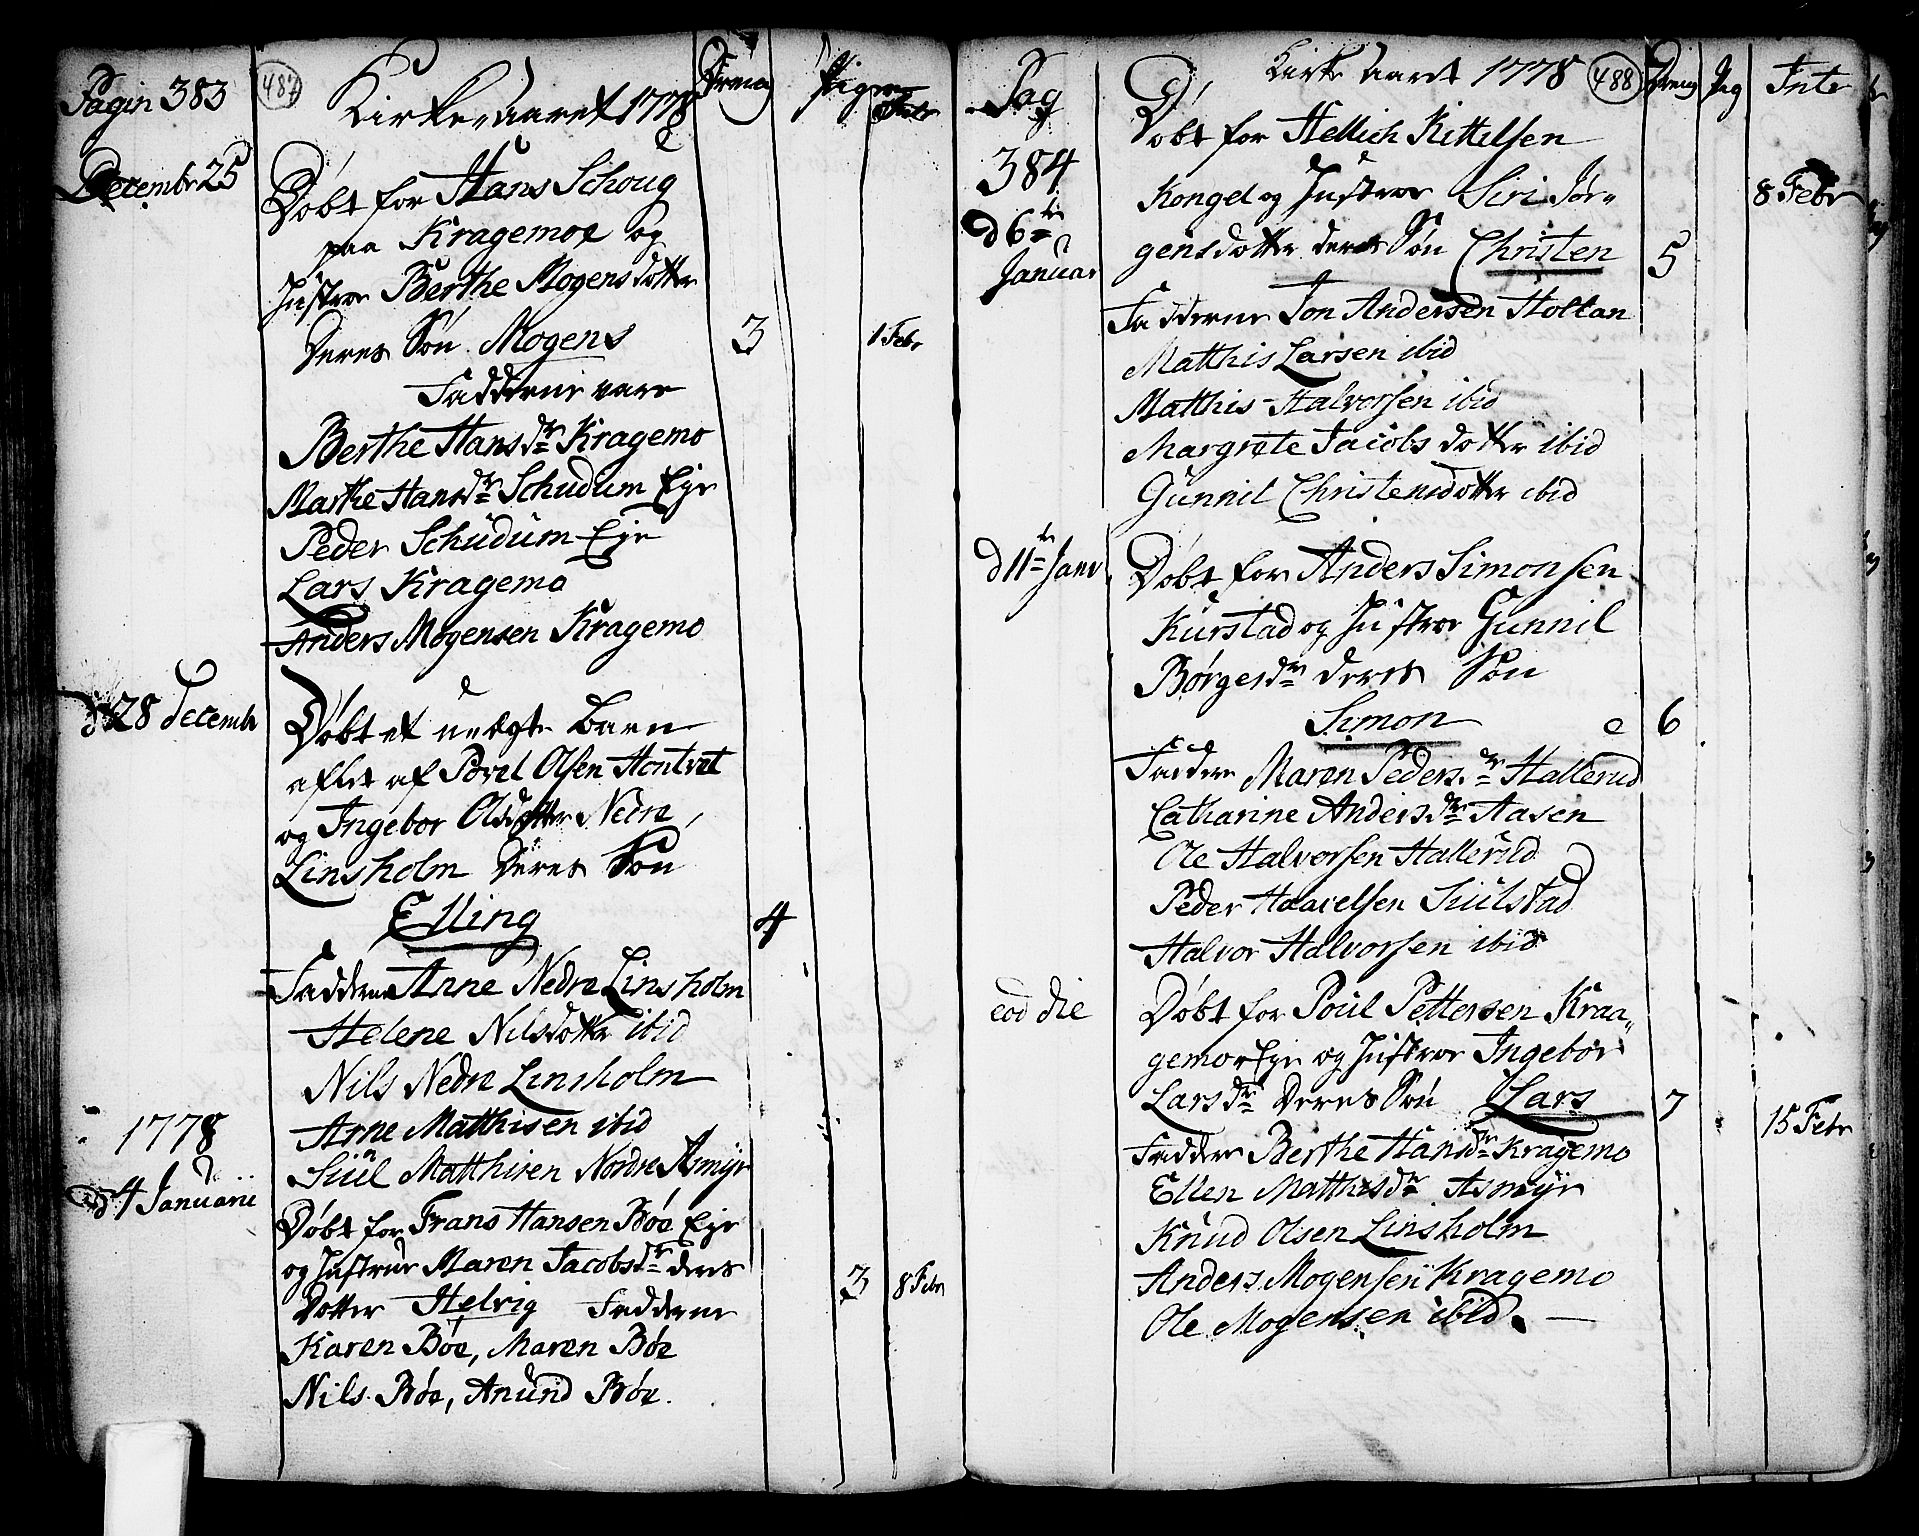 Pagin 383
487
Kirke-aaret 1778
Dreng
Pige
Intr
Decembr 25
Døbt for Hans Schoug
paa Kragemoe og
Hustroe Berthe Mogensdotter
Deres Søn Mogens 3 1 Febr
Fadderne vare
Berthe Hansdr Kragemo
Marthe Hansdr Schudum Eje
Peder Schudum Eje
Lars Kragemo
Anders Mogensen Kragemo
d 28 Decembr
Døbt et uægte Barn
aflet af Povel Olsen Hontvet
og Ingebor Olsdotter Nedre
Linsholm Deres Søn
Elling 4
Fadderne Anne Nedre Linsholm
Helene Nilsdotter ibid
Nils Nedre Linsholm
Arne Matthisen ibid
Juul Matthisen Nordre Asmyr
1778
d 4 Januarii
Døbt for Frans Hansen Bøe Eje
og Hustrue Maren Jacobsdr deres
Dotter Helvig Fadderne 3 8 Febr
Karen Bøe, Maren Bøe
Nils Bøe, Anund Bøe.
Pag
384
Kirke Aaret 1778
488
Dreng
Pig
Intr
d 6te
Januar
Døbt for Hellich Kittelsen
Kongel og Hustroe Siri Jør-
gensdotter deres Søn Christen 5 8 Febr
Fadderne Jon Andersen Holtan
Matthis Larsen ibid
Matthis Halvorsen ibid
Margrete Jacobsdotter ibid
Gunnil Christensdotter ibid
d 11te Janv
Døbt for Anders Simonsen
Kurstad og Hustroe Gunnil
Børgesdr deres Søn
Simon 6
Faddere Maren Pedersdr Hallerud
Catharine Andersdr Aasen
Ole Halvorsen Hallerud
Peder Haavelsen Juulstad
Halvor Halvorsen ibid
eod die
Døbt for Poul Pettersen Kraa-
gemoe Eje og Hustroe Ingebor
Larsdr Deres Søn Lars 7 15 Febr
Faddere Berthe Hansdr Kragemo
Ellen Matthisdr Asmyr
Knud Olsen Linsholm
Anders Mogensen Kragemo
Ole Mogensen ibid.